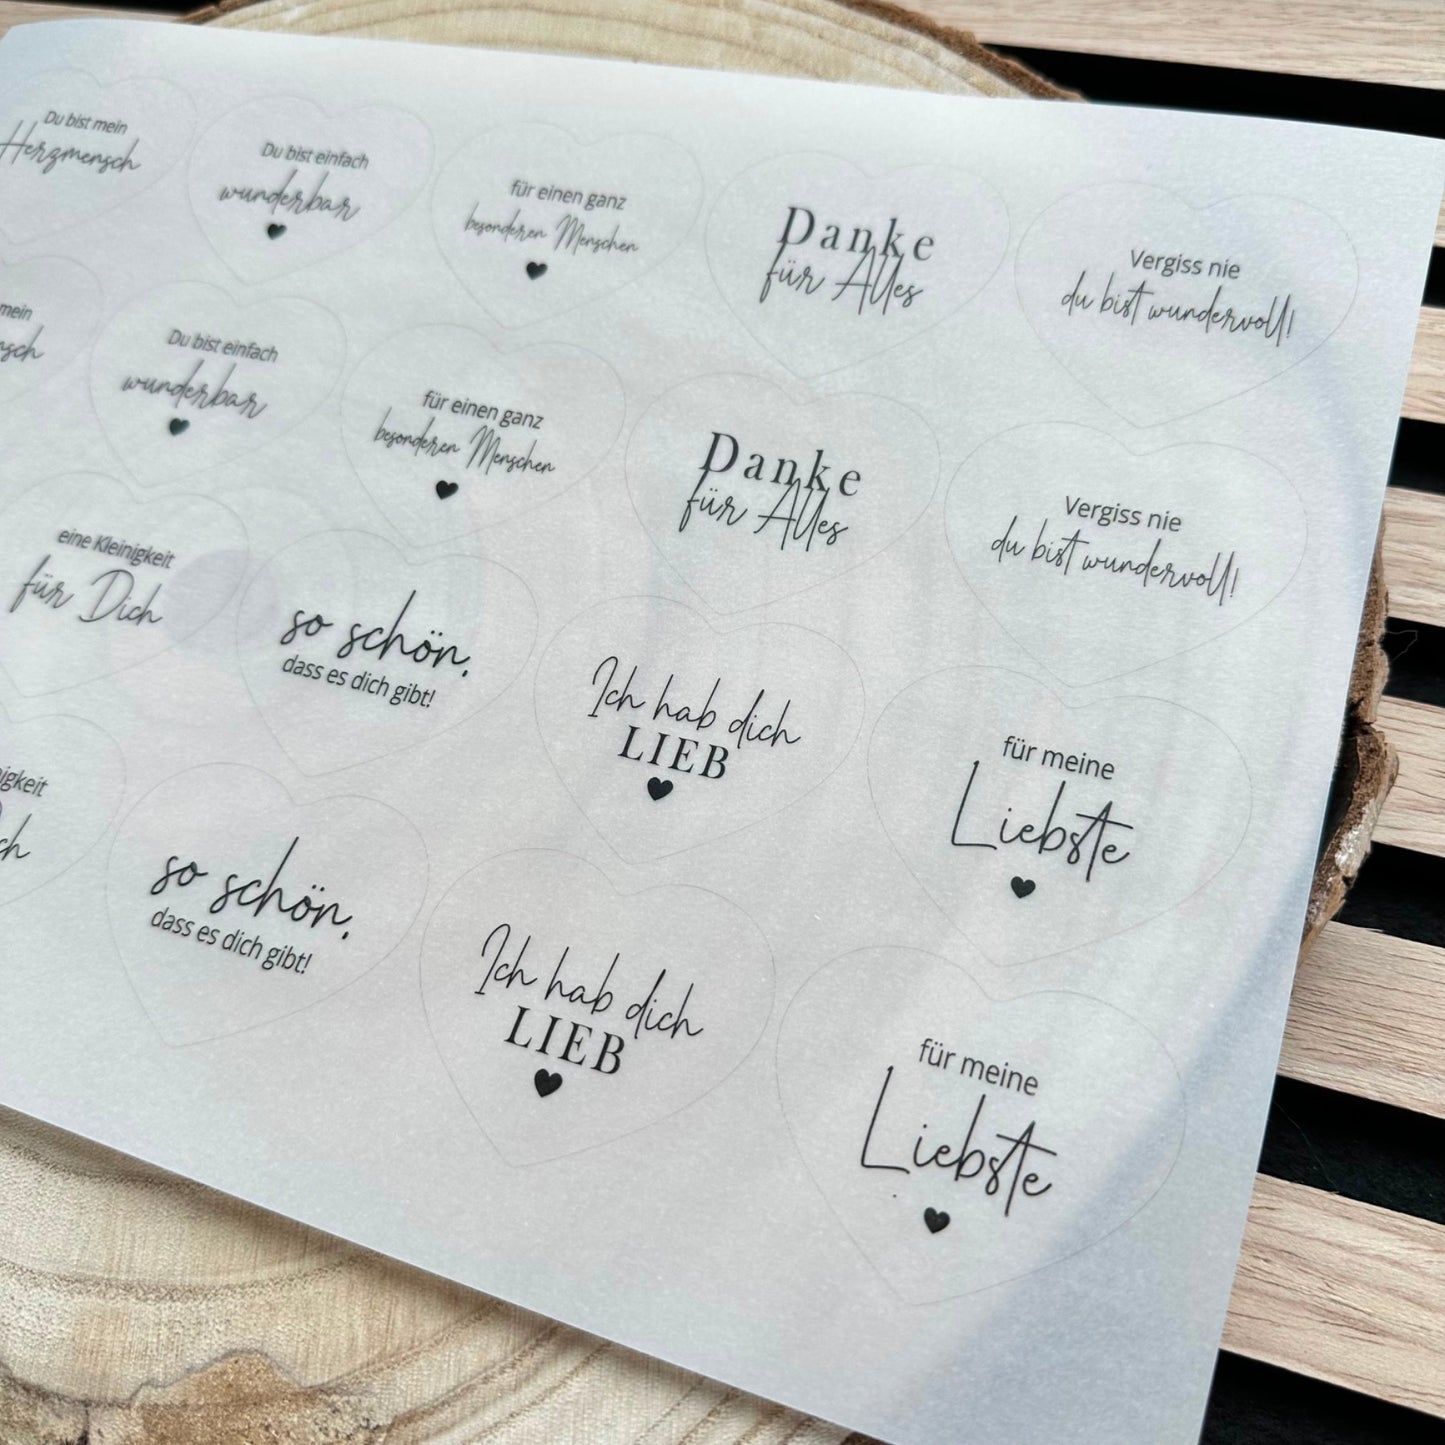 Du bist mein
Herzmensch
Du bist einfach
wunderbar
für einen ganz
besonderen Menschen
Danke
für Alles
Vergiss nie
du bist wundervoll!
mein
Du bist einfach
wunderbar
für einen ganz
besonderen Menschen
Danke
für Alles
Vergiss nie
du bist wundervoll!
eine Kleinigkeit
für Dich
so schön,
dass es dich gibt!
Ich hab dich
LIEB
für meine
Liebste
so schön,
dass es dich gibt!
Ich hab dich
LIEB
für meine
Liebste